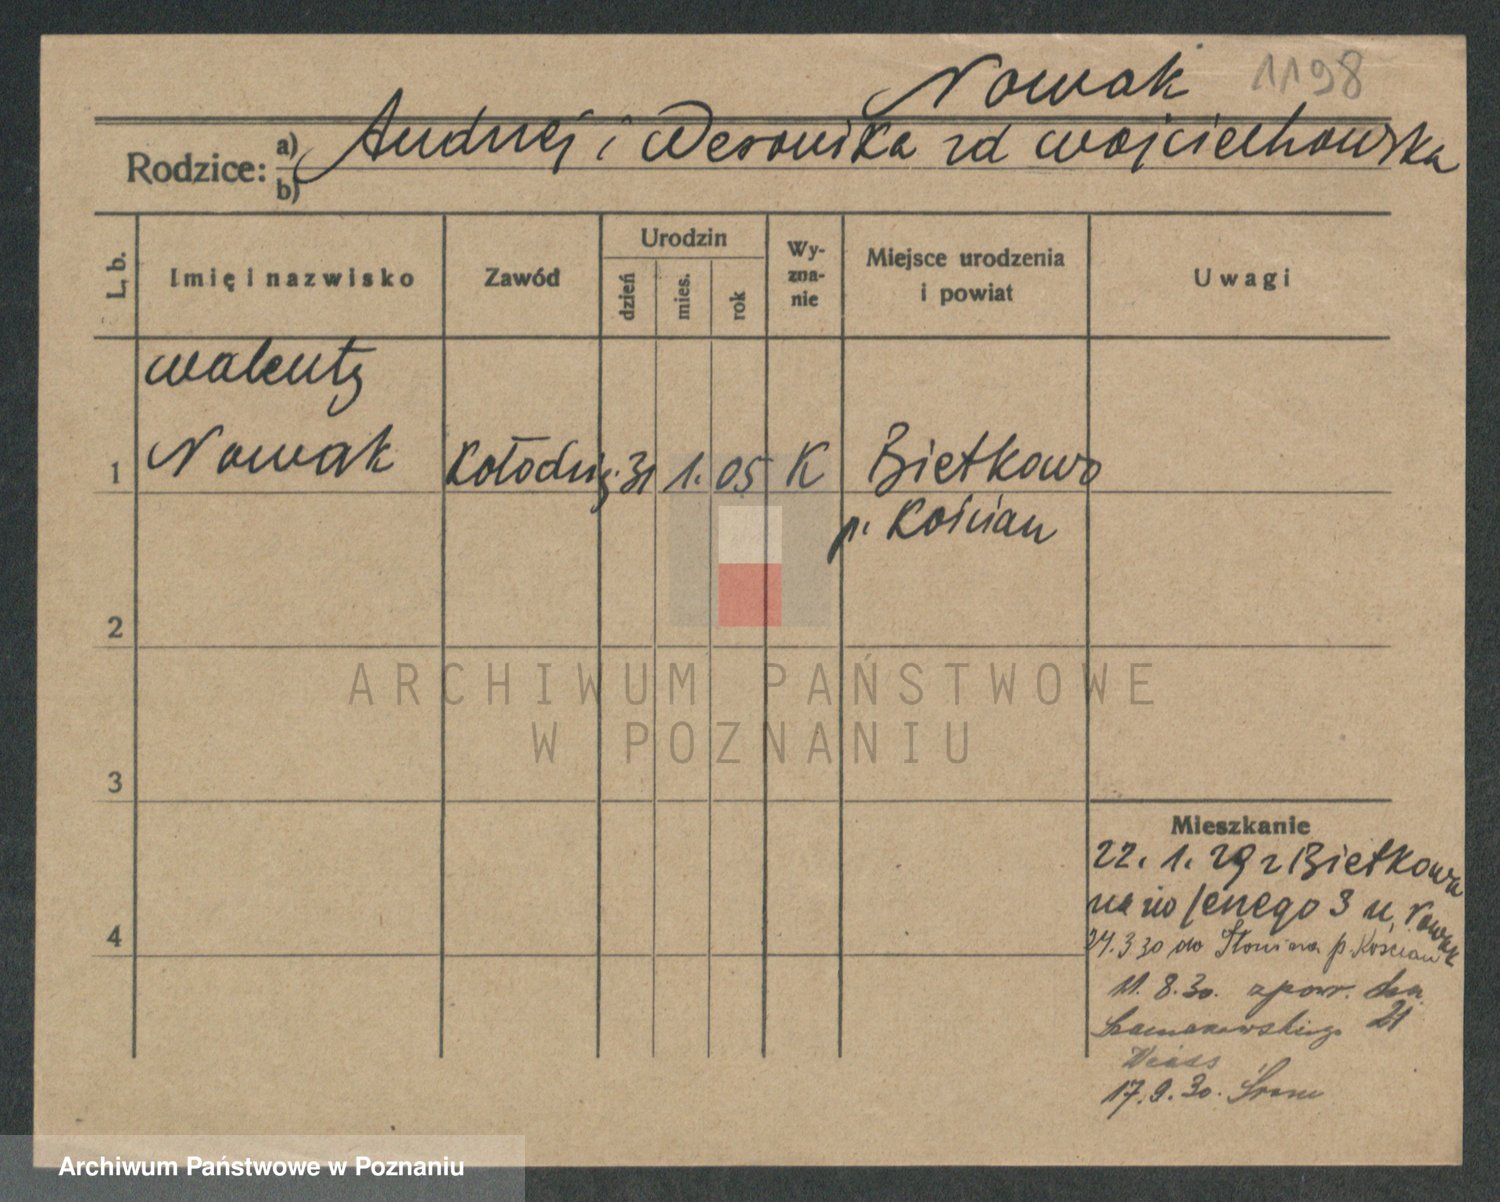 Nowak 1198
Rodzice: a) b) Andrzej i Weronika zd Wojciechowska
L. b. Imię i nazwisko Zawód Urodzin dzień mies. rok Wy-zna-nie Miejsce urodzenia i powiat Uwagi
Walenty
1 Nowak Kołodziej 31 1. 05 K Bietkowo
p. Kościan
2
ARCHIWUM PAŃSTWOWE
W POZNANIU
3
Mieszkanie
22. 1. 29 z Bietkowa
na 3 u. Nowak
4
24.3 30 do p. Kościan
11. 8. 30. z pow.
21
17. 9. 30. Śrem
Archiwum Państwowe w Poznaniu